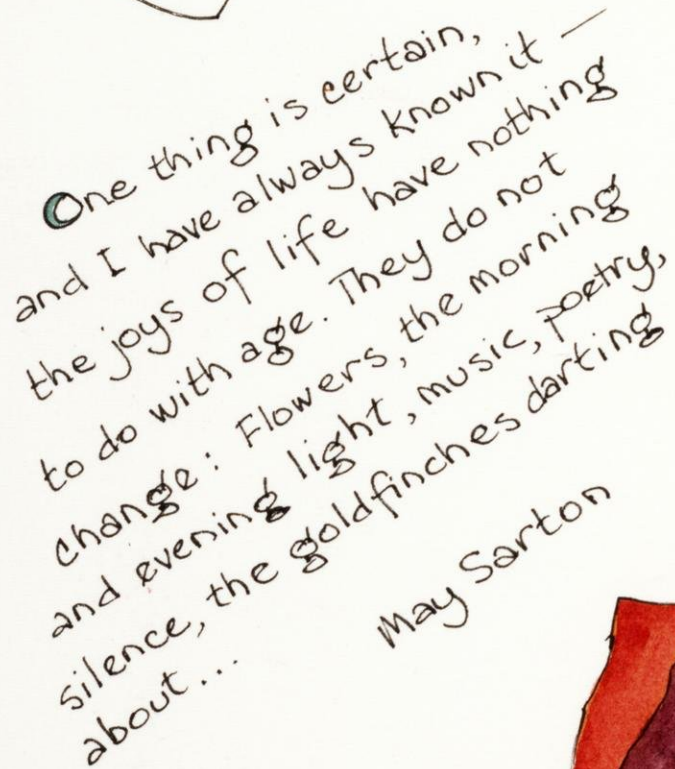 One thing is certain,
and I have always known it —
the joys of life have nothing
to do with age. They do not
change: Flowers, the morning
and evening light, music, poetry,
silence, the goldfinches darting
about...
May Sarton